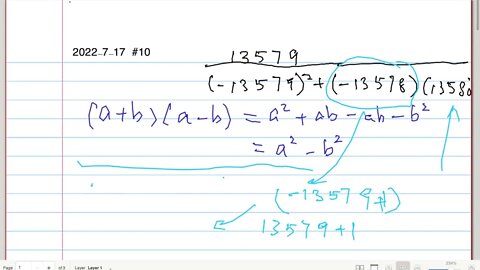 2022-7-17 #10
13579
(-13579)² + (-13578)(1358
(a+b)(a-b) = a² + ab - ab - b²
= a² - b²
(-13579+1)
13579+1
Page 1 of 3 Layer: Layer 1